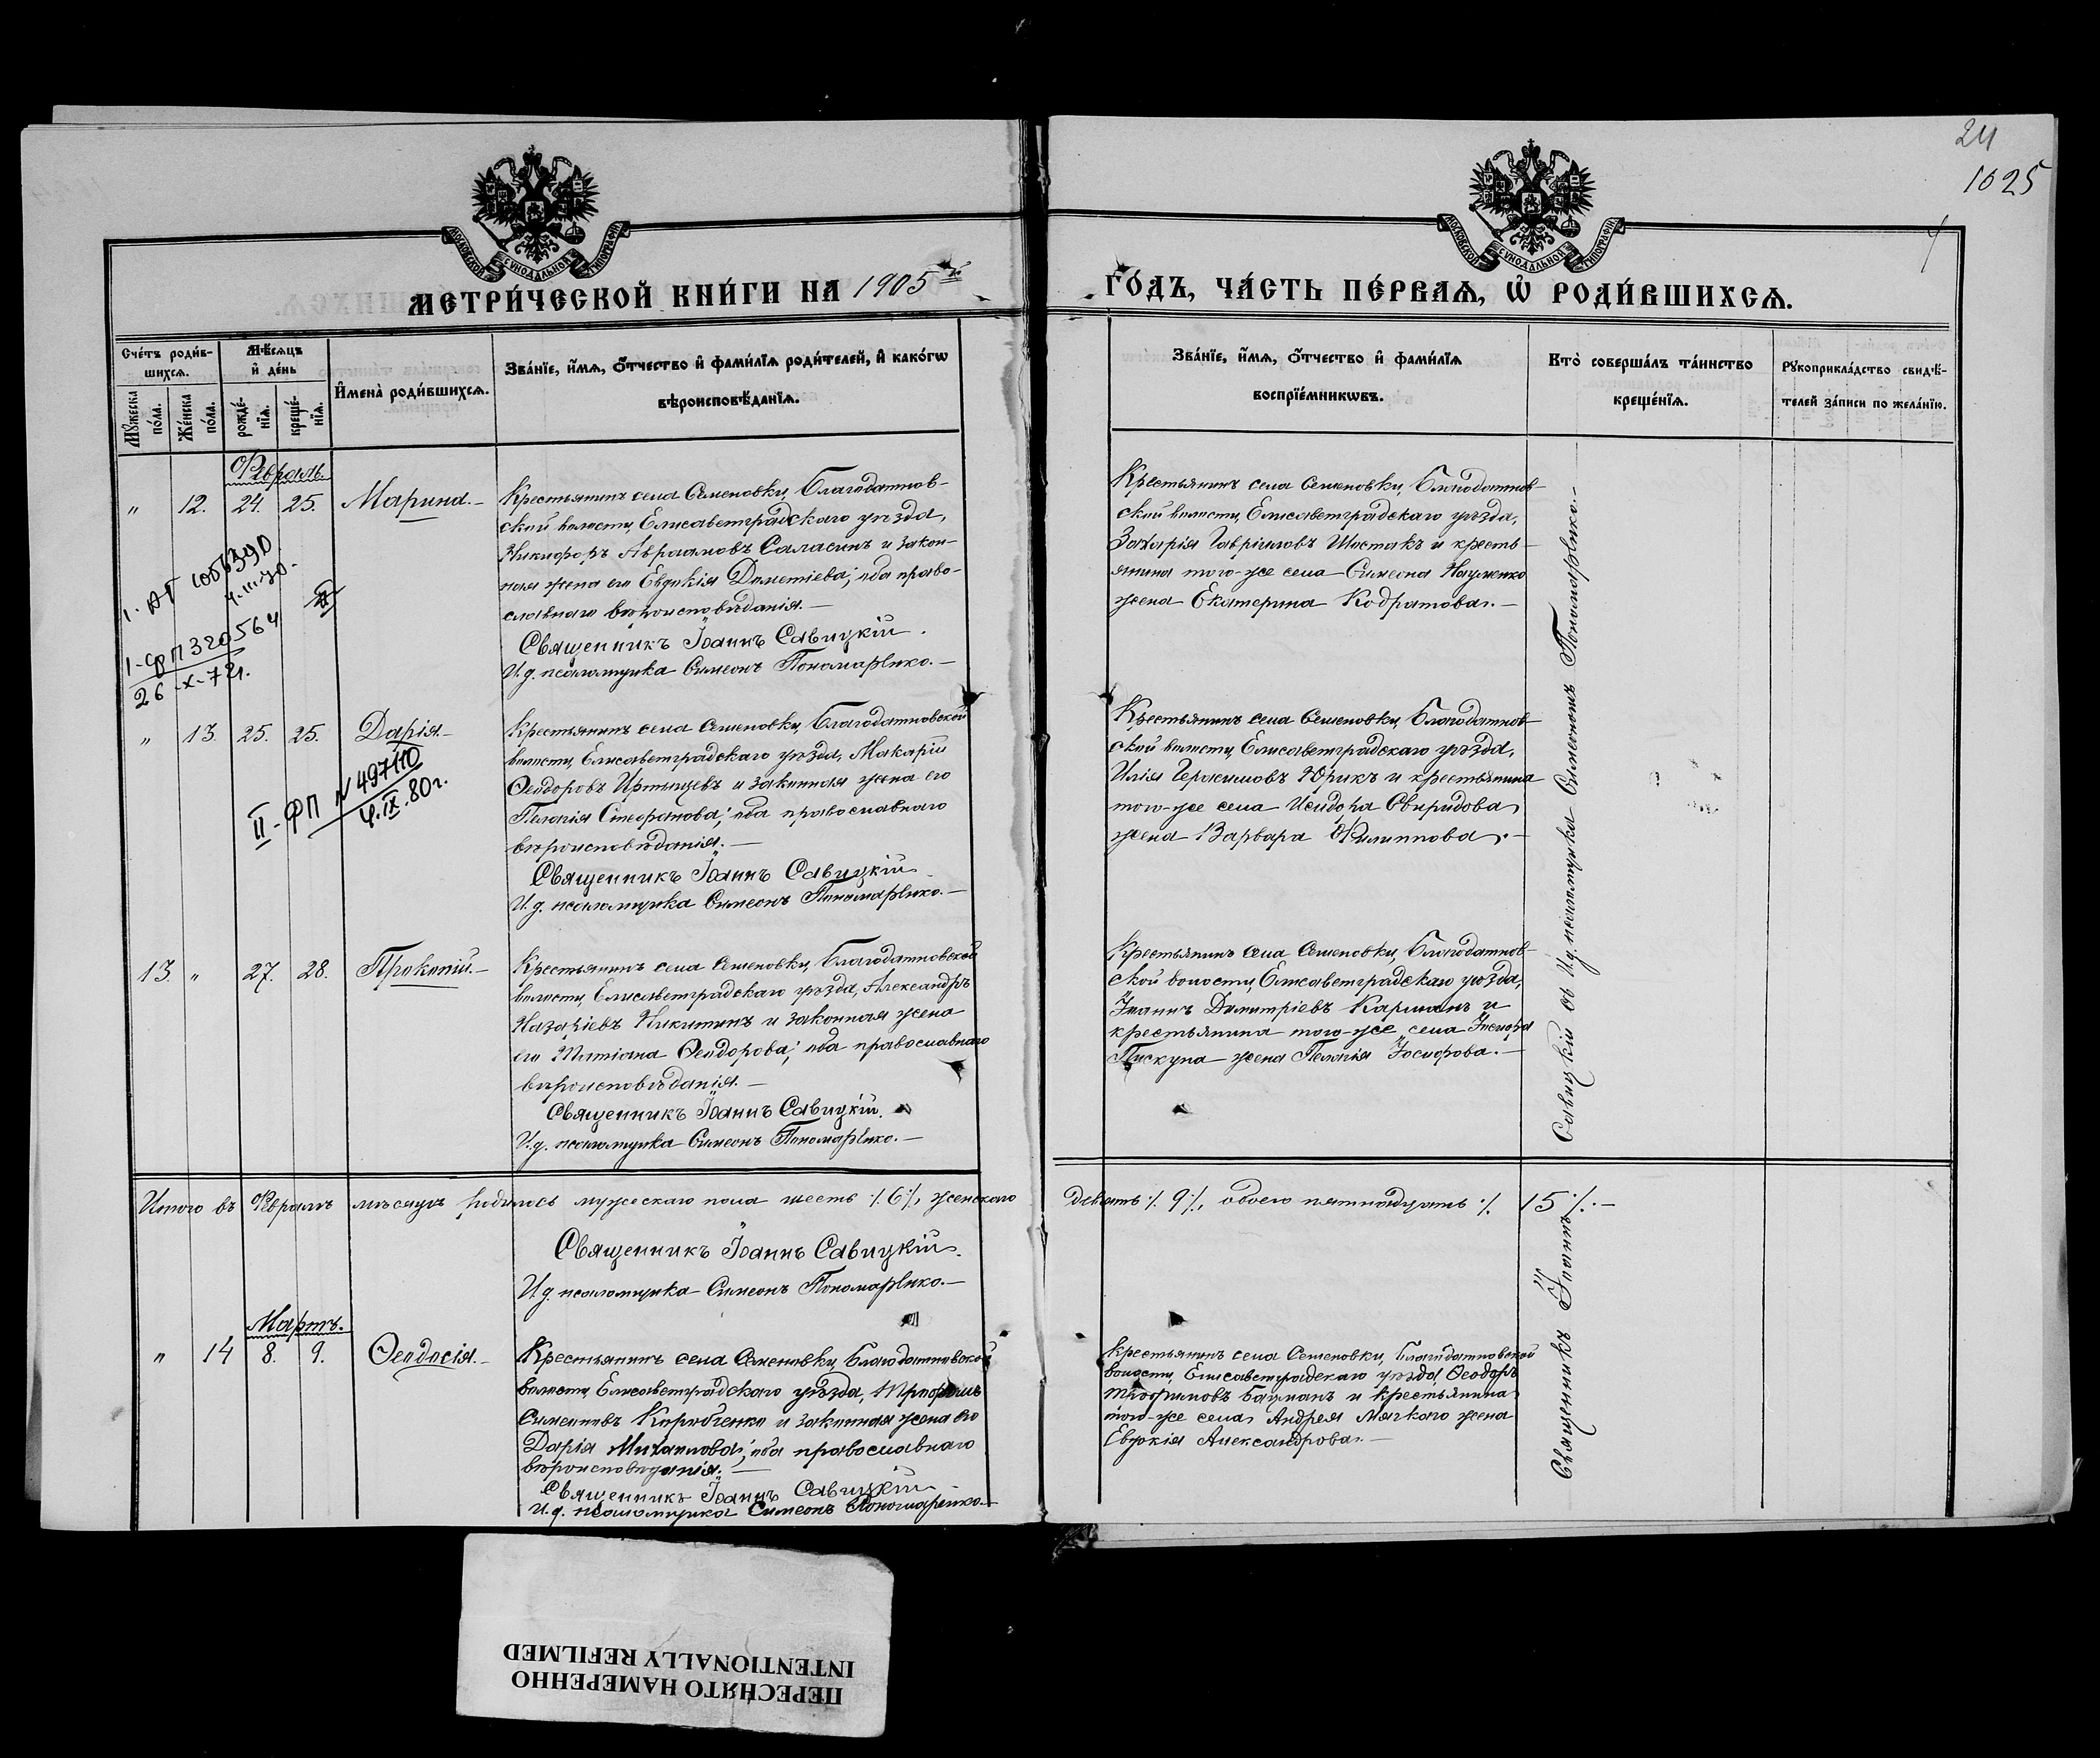 24
1025
МОСКОВСКОЙ СУНОДАЛЬНОЙ ТИПОГРАФІИ
МОСКОВСКОЙ СУНОДАЛЬНОЙ ТИПОГРАФІИ
МЕТРИ́ЧЕСКОЙ КНИ́ГИ НА 1905 й
ГО́ДЪ, ЧА́СТЬ ПЕ́РВАѦ, Ѡ҆ РОДИ́ВШИХСѦ.
Сче́тъ роди́в-
шихсѧ.
Мѣ́сѧцъ
и҆ де́нь
Мꙋ́жеска по́ла.
Же́нска по́ла.
рожде́-нїѧ.
креще́-нїѧ.
И҆мена̀ роди́вшихсѧ.
Зва́нїе, и҆́мѧ, ѻ҆́тчество и҆ фами́лїѧ роди́телей, и҆ како́гѡ
вѣроисповѣ́данїѧ.
Зва́нїе, и҆́мѧ, ѻ҆́тчество и҆ фами́лїѧ
воспрїе́мникѡвъ.
Кто̀ соверша́лъ та́инство
креще́нїѧ.
Рꙋкоприкла́дство свидѣ́-
телей за́писи по жела́нїю.
Февраль.
„ 12. 24. 25. Марина.–
Крестьянинъ села Семеновки, Благодатнов-
ской волости, Елисаветградскаго уѣзда,
Никифоръ Авраамовъ Саласинъ и закон-
ная жена его Евдокія Дометіева; оба право-
славнаго вѣроисповѣданія.–
Священникъ Іоаннъ Савицкій.
И. д. псаломщика Симеонъ Пономаренко.–
Крестьянинъ села Семеновки, Благодатнов-
ской волости, Елисаветградскаго уѣзда,
Захарія Гавріиловъ Шостакъ и кресть-
янина того-же села Симеона Науменко
жена Екатерина Кодратова.–
4.III.70.
I-ФП 320564
26-X-72г.
„ 13. 25. 25. Дарія.–
II-ФП №497110
4.IX.80г.
Крестьянинъ села Семеновки, Благодатновской
волости, Елисаветградскаго уѣзда, Макарій
Ѳеодоровъ Иртыщевъ и законная жена его
Пелагія Стефанова; оба православнаго
вѣроисповѣданія.–
Священникъ Іоаннъ Савицкій.
И. д. псаломщика Симеонъ Пономаренко.–
Крестьянинъ села Семеновки, Благодатнов-
ской волости, Елисаветградскаго уѣзда,
Илія Герасимовъ Юрикъ и крестьянина
того-же села Исидора Свиридова
жена Варвара Филиппова.–
13. „ 27. 28. Прокопій.–
Крестьянинъ села Семеновки, Благодатновской
волости, Елисаветградскаго уѣзда, Александръ
Назаріевъ Никитинъ и законная жена
его Татіана Ѳеодорова; оба православнаго
вѣроисповѣданія.–
Священникъ Іоаннъ Савицкій.
И. д. псаломщика Симеонъ Пономаренко.–
Крестьянинъ села Семеновки, Благодатнов-
ской волости, Елисаветградскаго уѣзда,
Іоаннъ Димитріевъ Карманъ и
крестьянина того-же села Іосифа
Пискуна жена Пелагія Іосифова.–
Итого въ Февралѣ мѣсяцѣ родилось мужескаго пола шесть ⁒ 6 ⁒, женскаго
девять ⁒ 9 ⁒, обоего пятнадцать ⁒ 15 ⁒.–
Священникъ Іоаннъ Савицкій.
И. д. псаломщика Симеонъ Пономаренко.–
Мартъ.
„ 14 8. 9. Ѳеодосія.–
Крестьянинъ села Семеновки, Благодатновской
волости, Елисаветградскаго уѣзда, Трофимъ
Симеоновъ Коробченко и законная жена его
Дарія Михаилова; оба православнаго
вѣроисповѣданія.–
Священникъ Іоаннъ Савицкій
И. д. псаломщика Симеонъ Пономаренко.–
Крестьянинъ села Семеновки, Благодатновской
волости, Елисаветградскаго уѣзда, Ѳеодоръ
Трофимовъ Бауманъ и крестьянина
того-же села Андрея Мягкаго жена
Евдокія Александрова.–
Священникъ Іоаннъ Савицкій съ И. д. псаломщика Симеономъ Пономаренко.–
ПЕРЕСНЯТО НАМЕРЕННО
INTENTIONALLY REFILMED